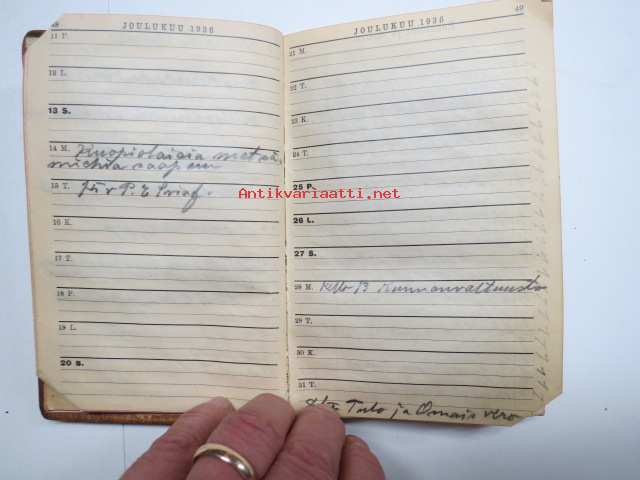 48
JOULUKUU 1936
11 P.
12 L.
13 S.
14 M. Kuopiolaisia metsä
miehiä saapuu
15 T. Jür P. E.
16 K.
17 T.
18 P.
19 L.
20 S.
JOULUKUU 1936
49
21 M.
22 T.
23 K.
24 T.
25 P.
26 L.
27 S.
28 M. Klo 13 Kunnanvaltuusto
29 T.
30 K.
31 T.
Tulo ja Omais vero
Antikvariaatti.net